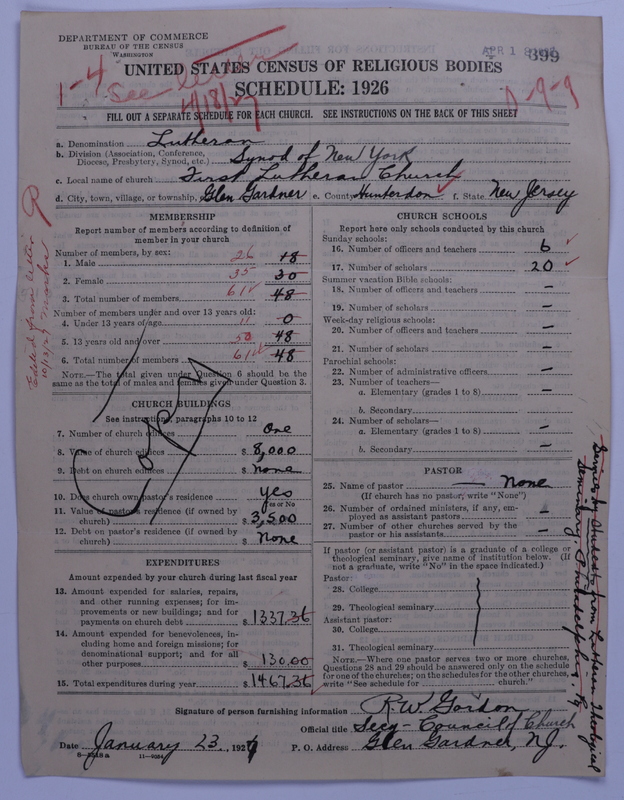 DEPARTMENT OF COMMERCE
BUREAU OF THE CENSUS
WASHINGTON
APR 1 8
399
1-4 See letter
4/18/27
UNITED STATES CENSUS OF RELIGIOUS BODIES
SCHEDULE: 1926
D-9-9
FILL OUT A SEPARATE SCHEDULE FOR EACH CHURCH. SEE INSTRUCTIONS ON THE BACK OF THIS SHEET
a. Denomination Lutheran
b. Division (Association, Conference, Diocese, Presbytery, Synod, etc.) Synod of New York
c. Local name of church First Lutheran Church
d. City, town, village, or township Glen Gardner e. County Hunterdon f. State New Jersey
MEMBERSHIP
Report number of members according to definition of
member in your church
Number of members, by sex:
1. Male 26 18
2. Female 35 30
3. Total number of members 61 48
Number of members under and over 13 years old:
4. Under 13 years of age 11 0
5. 13 years old and over 50 48
6. Total number of members 61 48
NOTE.—The total given under Question 6 should be the
same as the total of males and females given under Question 3.
Copy
CHURCH BUILDINGS
See instructions, paragraphs 10 to 12
7. Number of church edifices One
8. Value of church edifices $ 8,000
9. Debt on church edifices $ None
10. Does church own pastor's residence yes
Yes or No
11. Value of pastor's residence (if owned by
church) $ 3,500
12. Debt on pastor's residence (if owned by
church) $ None
EXPENDITURES
Amount expended by your church during last fiscal year
13. Amount expended for salaries, repairs,
and other running expenses; for im-
provements or new buildings; and for
payments on church debt $ 1337.36
14. Amount expended for benevolences, in-
cluding home and foreign missions; for
denominational support; and for all
other purposes $ 130.00
15. Total expenditures during year $ 1467.36
CHURCH SCHOOLS
Report here only schools conducted by this church
Sunday schools:
16. Number of officers and teachers 6
17. Number of scholars 20
Summer vacation Bible schools:
18. Number of officers and teachers —
19. Number of scholars —
Week-day religious schools:
20. Number of officers and teachers —
21. Number of scholars —
Parochial schools:
22. Number of administrative officers —
23. Number of teachers—
a. Elementary (grades 1 to 8) —
b. Secondary —
24. Number of scholars—
a. Elementary (grades 1 to 8) —
b. Secondary —
PASTOR
25. Name of pastor — None
(If church has no pastor, write "None")
26. Number of ordained ministers, if any, em-
ployed as assistant pastors —
27. Number of other churches served by the
pastor or his assistants —
If pastor (or assistant pastor) is a graduate of a college or
theological seminary, give name of institution below. (If
not a graduate, write "No" in the space indicated.)
Pastor:
28. College
29. Theological seminary
Assistant pastor:
30. College
31. Theological seminary
NOTE.—Where one pastor serves two or more churches,
Questions 28 and 29 should be answered only on the schedule
for one of the churches; on the schedules for the other churches,
write "See schedule for church."
Signature of person furnishing information R. W. Gordon
Official title Secy - Council of Church
Date January 23, 1927 P. O. Address Glen Gardner, N.J.
Edited from letter
Served by Students from Lutheran Theological
Seminary Philadelphia